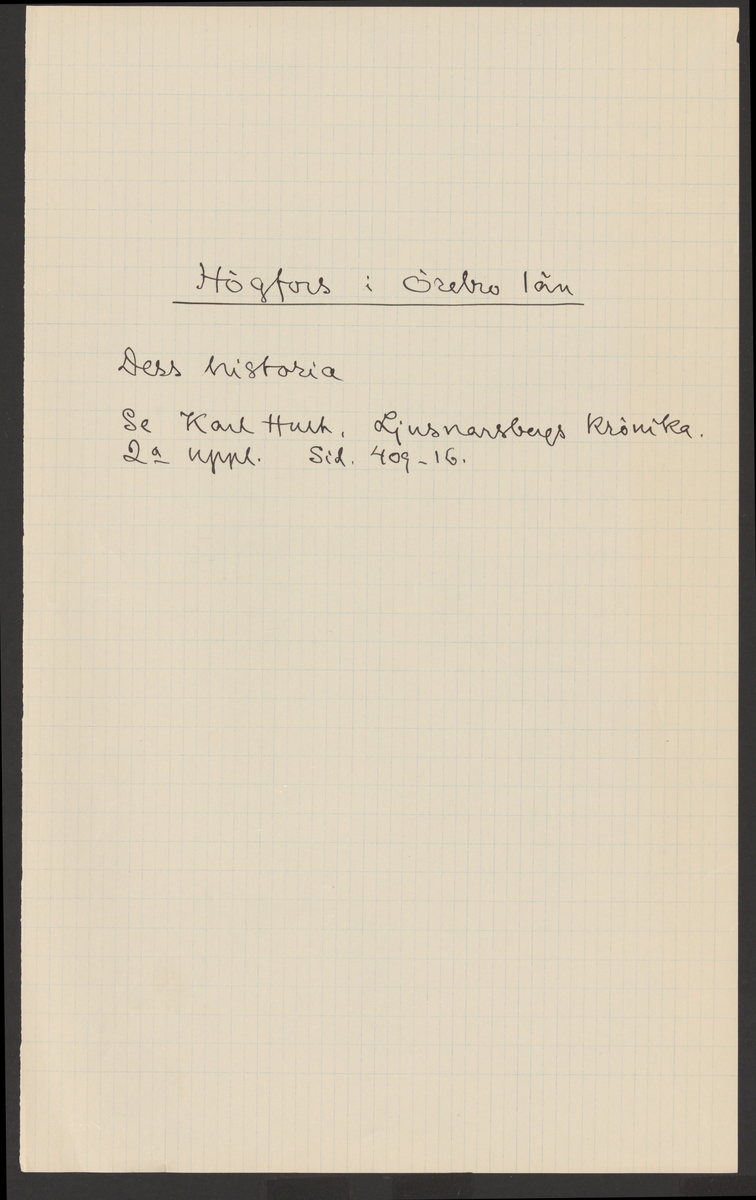 Högfors i Örebro län
Dess historia
Se Karl Hult, Ljusnarsbergs krönika.
2a uppl. Sid. 409-16.